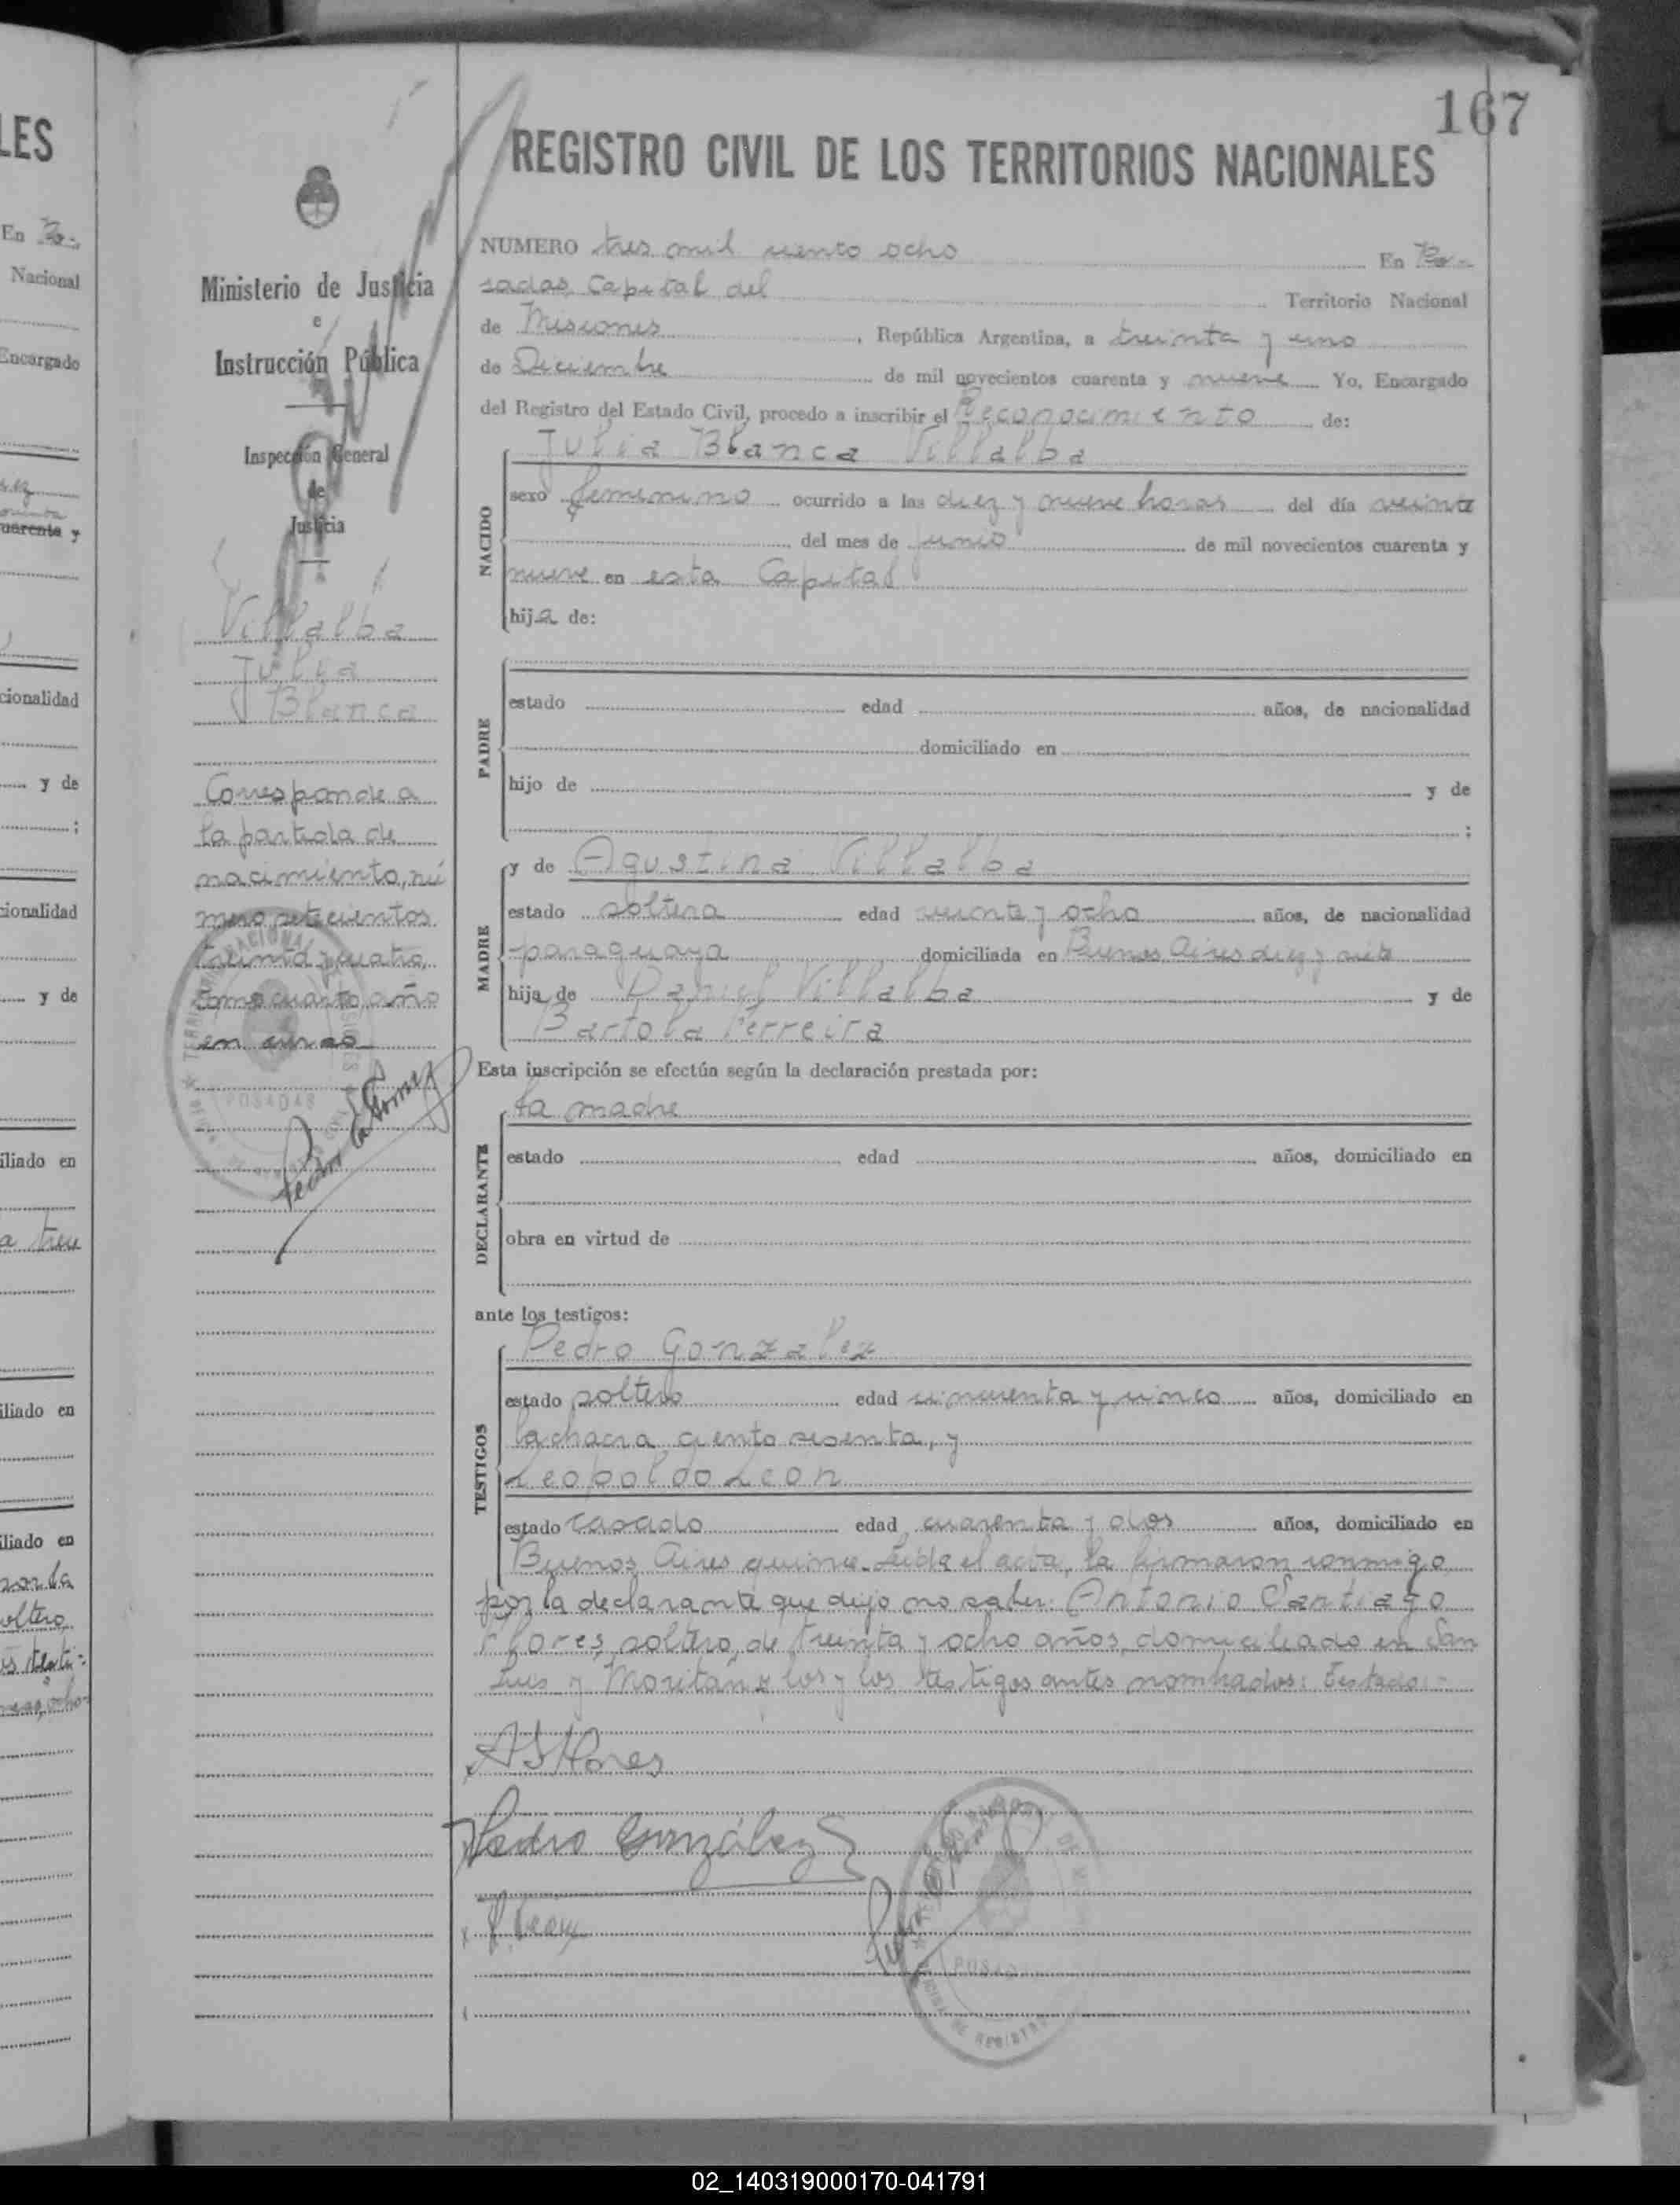 167
REGISTRO CIVIL DE LOS TERRITORIOS NACIONALES
Ministerio de Justicia
e
Instrucción Pública
Inspección General
de
Justicia
Villalba
Julia
Blanca
Corresponde a
la partida de
nacimiento, nú
mero setecientos
treinta y cuatro,
tomo cuarto año
en curso
NUMERO tres mil ciento ocho En Po-
sadas, Capital del Territorio Nacional
de Misiones, República Argentina, a treinta y uno
de Diciembre de mil novecientos cuarenta y nueve Yo, Encargado
del Registro del Estado Civil, procedo a inscribir el Reconocimiento de:
Julia Blanca Villalba
NACIDO
sexo femenino ocurrido a las diez y nueve horas del día veinte
del mes de junio de mil novecientos cuarenta y
nueve en esta Capital
hija de:
PADRE
estado edad años, de nacionalidad
domiciliado en
hijo de y de
;
MADRE
y de Agustina Villalba
estado soltera edad veinte y ocho años, de nacionalidad
paraguaya domiciliada en Buenos Aires diez y siete
hija de Daniel Villalba y de
Bartola Ferreira
Esta inscripción se efectúa según la declaración prestada por:
DECLARANTE
la madre
estado edad años, domiciliado en
obra en virtud de
ante los testigos:
TESTIGOS
Pedro Gonzalez
estado soltero edad cincuenta y cinco años, domiciliado en
la chacra ciento sesenta, y
Leopoldo Leon
estado casado edad cuarenta y dos años, domiciliado en
Buenos Aires quince. Leída el acta, la firmaron conmigo,
por la declarante que dijo no saber: Antonio Santiago
Flores, soltero, de treinta y ocho años, domiciliado en San
Luis y los y los testigos antes nombrados: Testado:-
ASFlores
Pedro González
L. Leon
POSADAS
02_140319000170-041791